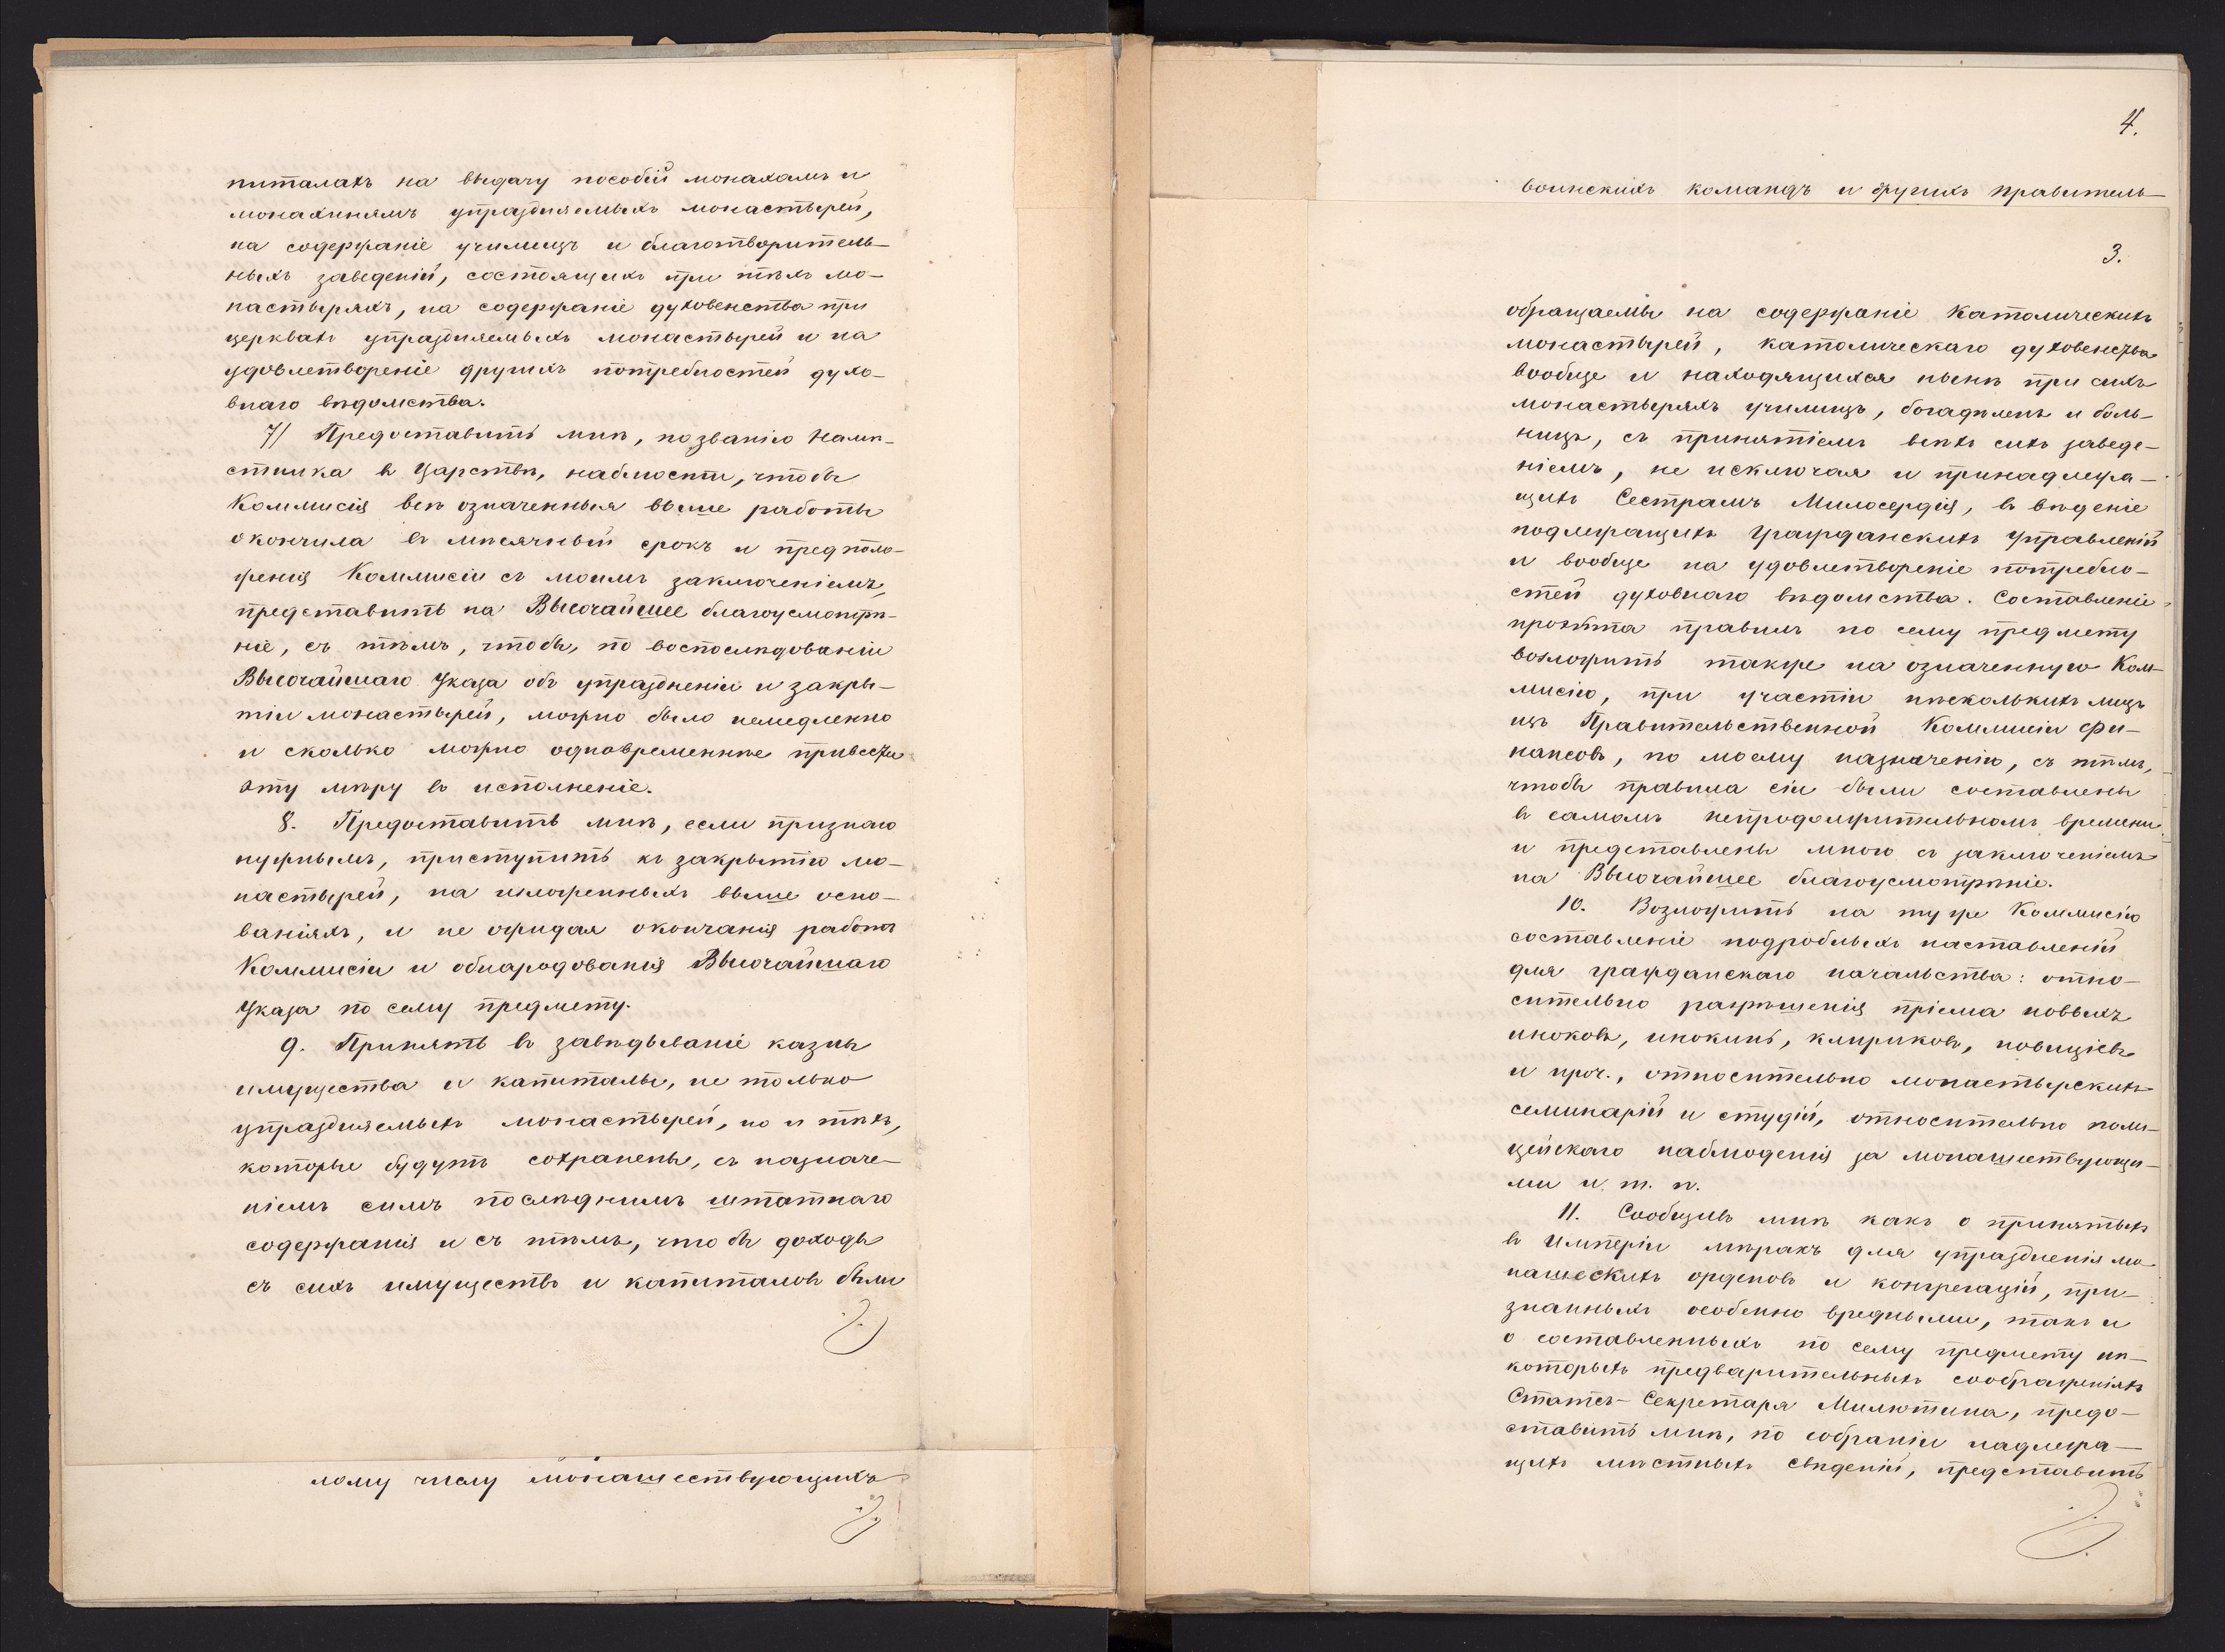 питалахъ на выдачу пособій монахамъ и
монахинямъ упраздняемыхъ монастырей,
на содержаніе училищъ и благотворитель-
ныхъ заведеній, состоящихъ при тѣхъ мо-
настыряхъ, на содержаніе духовенства при
церквахъ упраздняемыхъ монастырей и на
удовлетвореніе другихъ потребностей духо-
внаго вѣдомства.
7/ Предоставить мнѣ, по званію Намѣ-
стника въ Царствѣ, наблюсти, чтобы
Коммисія всѣ означенныя выше работы
окончила въ мѣсячный срокъ и предполо-
женія Коммисіи съ моимъ заключеніемъ,
представить на Высочайшее благоусмотрѣ-
ніе, съ тѣмъ, чтобы, по воспослѣдованіи
Высочайшаго Указа объ упраздненіи и закры-
тіи монастырей, можно было немедленно
и сколько можно одновременнѣе привести
эту мѣру въ исполненіе.
8. Предоставить мнѣ, если признаю
нужнымъ, приступить къ закрытію мо-
настырей, на изложенныхъ выше осно-
ваніяхъ, и не ожидая окончанія работъ
Коммисіи и обнародованія Высочайшаго
Указа по сему предмету.
9. Принять въ завѣдываніе казны
имущества и капиталы, не только
упраздняемыхъ монастырей, но и тѣхъ,
которые будутъ сохранены, съ назначе-
ніемъ симъ послѣднимъ штатнаго
содержанія и съ тѣмъ, чтобы доходы
съ сихъ имуществъ и капиталовъ были
лому числу монашествующихъ
4.
воинскихъ командъ и другихъ правитель-
3.
обращаемы на содержаніе Католическихъ
монастырей, католическаго духовенства
вообще и находящихся нынѣ при сихъ
монастыряхъ училищъ, богадѣленъ и боль-
ницъ, съ принятіемъ всѣхъ сихъ заведе-
ніемъ, не исключая и принадлежа-
щихъ Сестрамъ Милосердія, въ вѣденіе
подлежащихъ Гражданскихъ Управленій
и вообще на удовлетвореніе потребно-
стей духовнаго вѣдомства. Составленіе
проэкта правилъ по сему предмету
возложить также на означенную Ком-
мисію, при участіи нѣсколькихъ лицъ
изъ Правительственной Коммисіи Фи-
нансовъ, по моему назначенію, съ тѣмъ,
чтобы правила сіи были составлены
въ самомъ непродолжительномъ времени
и представлены мною съ заключеніемъ
на Высочайшее благоусмотрѣніе.
10. Возложить на ту же Коммисію
составленіе подробныхъ наставленій
для гражданскаго начальства: отно-
сительно разрѣшенія пріема новыхъ
иноковъ, инокинь, клириковъ, новиціевъ
и проч., относительно монастырскихъ
семинарій и студій, относительно поли-
цейскаго наблюденія за монашествующи-
ми и т. п.
11. Сообщивъ мнѣ какъ о принятыхъ
въ Имперіи мѣрахъ для упраздненія мо-
нашескихъ орденовъ и конгрегацій, при-
знанныхъ особенно вредными, такъ и
о составленныхъ по сему предмету нѣ-
которыхъ предварительныхъ соображеніяхъ
Статсъ-Секретаря Милютина, предо-
ставить мнѣ, по собраніи надлежа-
щихъ мѣстныхъ свѣденій, представить